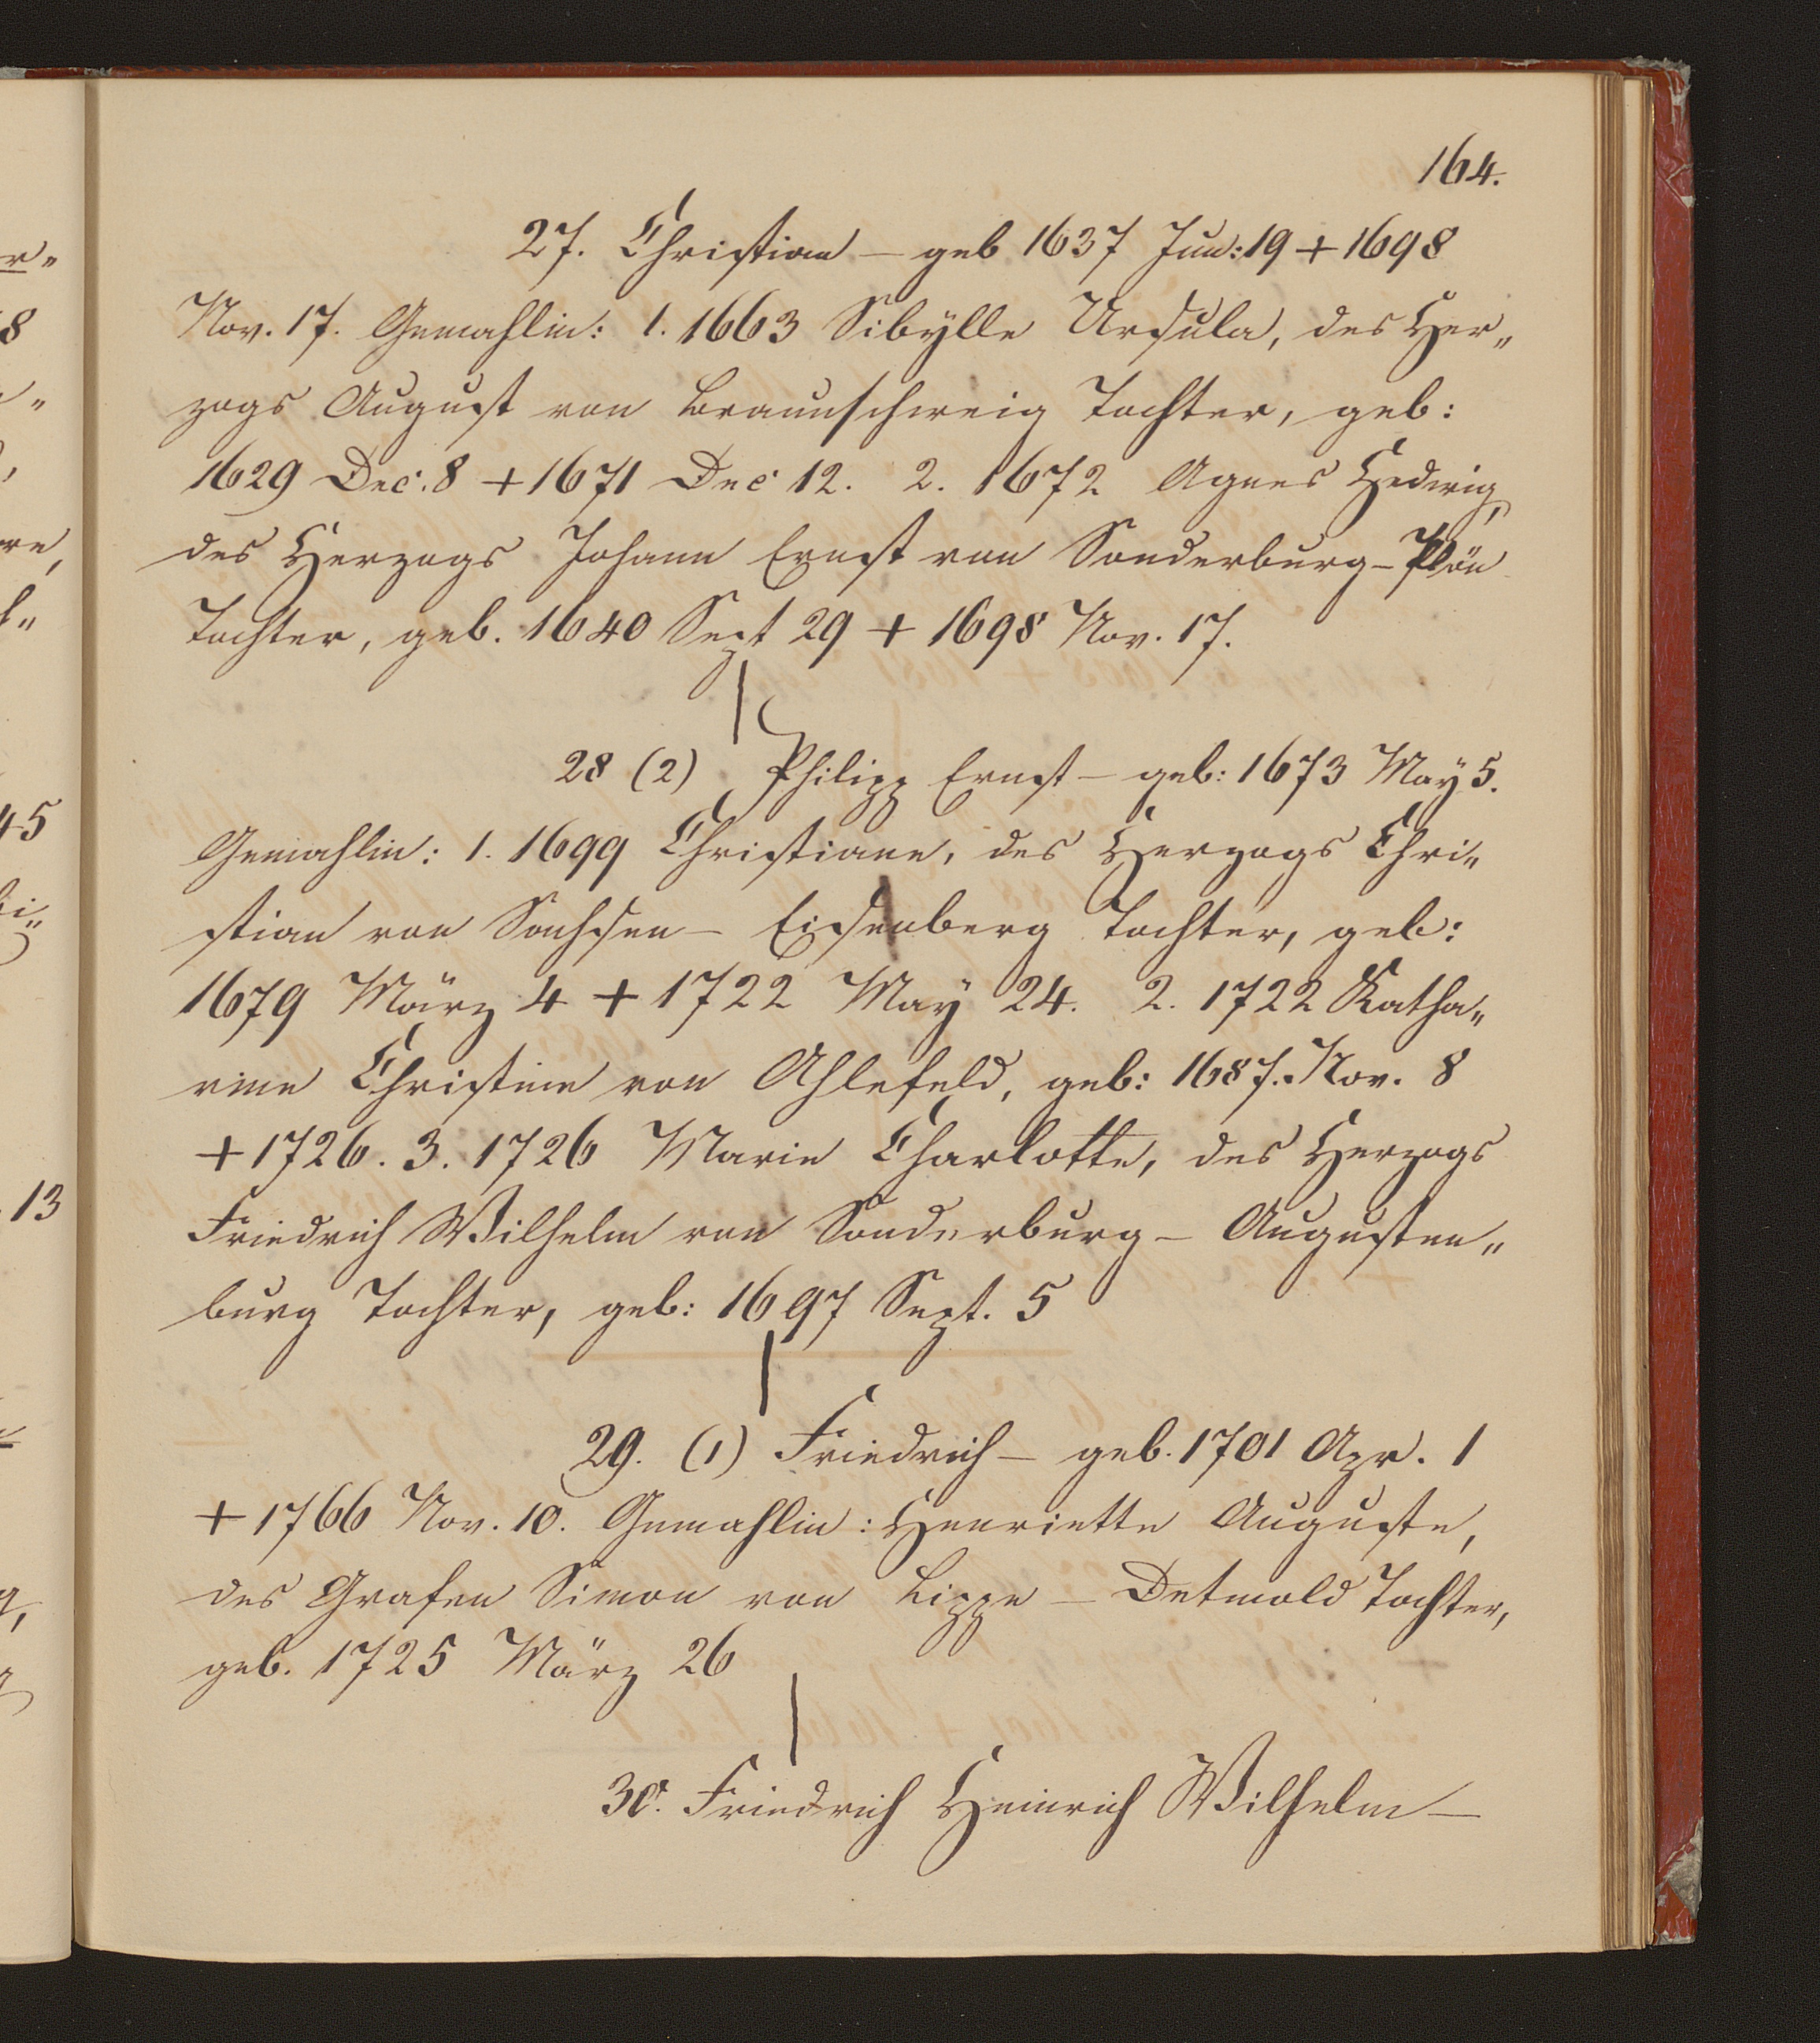 164.
27. Christian — geb 1637 Jun: 19 + 1698
Nov. 17. Gemahlin: 1. 1663 Sibÿlle Ursula, des Her„
zogs August von Braunschweig Tochter, geb:
1629 Dec. 8 + 1671 Dec 12. 2. 1672 Agnes Hedwig,
des Herzogs Johann Ernst von Sonderburg-Plön
Tochter, geb. 1640 Sept 29 + 1698 Nov. 17.
28 (2) Philipp Ernst — geb: 1673 Maÿ 5.
Gemahlin: 1. 1699 Christiane, des Herzogs Chri„
stian von Sachsen — Eisenberg Tochter, geb:
1679 März 4 + 1722 Maÿ 24. 2. 1722 Katha„
rine Christine von Ahlefeld, geb: 1687. Nov. 8
+ 1726. 3. 1726 Marie Charlotte, des Herzogs
Friedrich Wilhelm von Sonderburg — Augusten„
burg Tochter, geb: 1697 Sept. 5
29. (1) Friedrich — geb. 1701 Apr. 1
+ 1766 Nov. 10. Gemahlin: Henriette Auguste,
des Grafen Simon von Lippe — Detmold Tochter,
geb. 1725 März 26
30. Friedrich Heinrich Wilhelm —